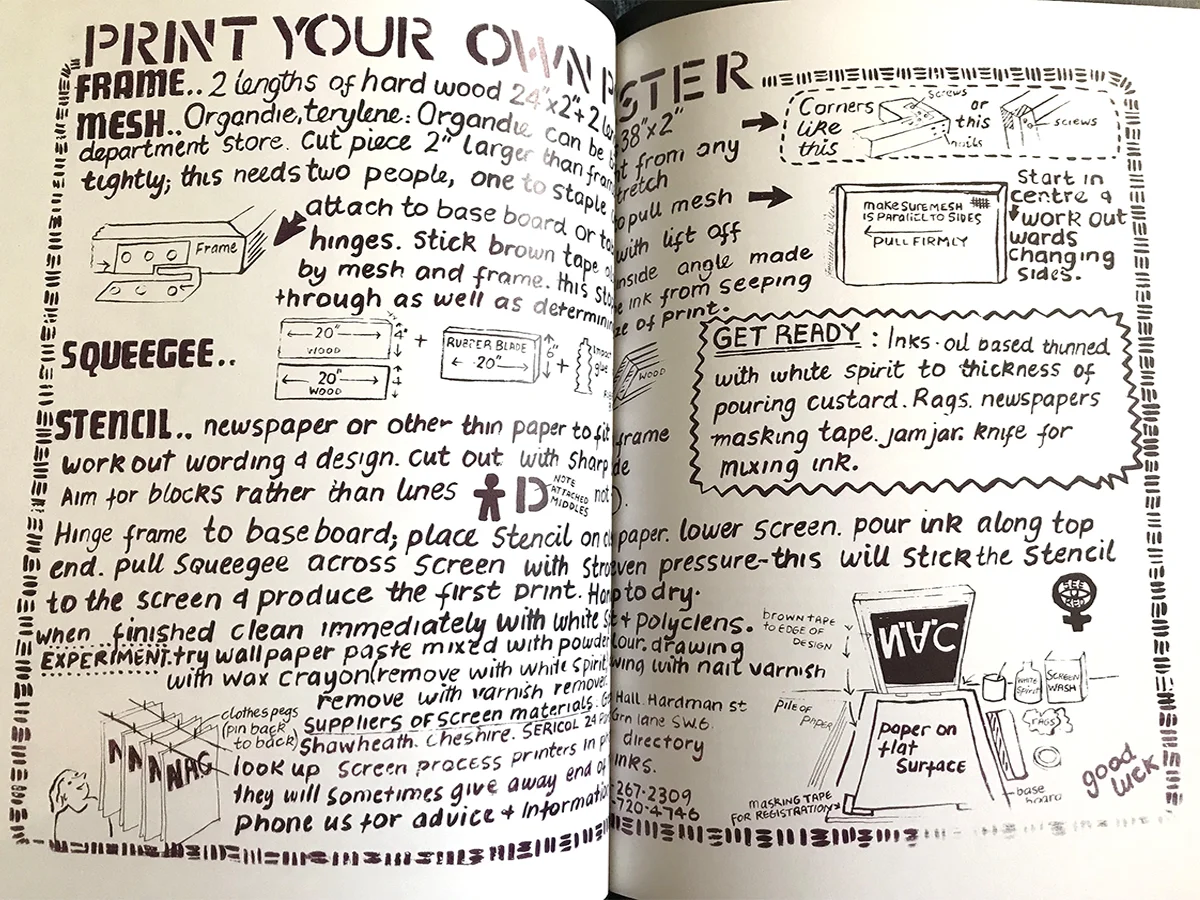 PRINT YOUR OWN P STER
FRAME.. 2 lengths of hard wood 24"x2"+ 2 38"x2"
MESH.. Organdie, terylene: Organdie can be from any
department store. Cut piece 2" larger than stretch
tightly; this needs two people, one to staple to pull mesh
Corners like this
screws
or this
nails
screws
makE SURE MESH IS PARALLEL TO SIDES
PULL FIRMLY
Start in centre & work out wards changing sides.
Frame
attach to base board or with lift off
hinges. Stick brown tape inside angle made
by mesh and frame. this ink from seeping
through as well as of print.
SQUEEGEE..
20"
WOOD
4"
20"
WOOD
+
RUBBER BLADE
20"
6"
+
glue
WOOD
GET READY : Inks. oil based thinned
with white spirit to thickness of
pouring custard. Rags. newspapers
masking tape. jam jar. knife for
mixing ink.
STENCIL.. newspaper or other thin paper to fit frame
work out wording & design. cut out with sharp
Aim for blocks rather than lines D NOTE ATTACHED MIDDLES not
Hinge frame to base board; place Stencil on paper. lower screen. pour ink along top
end. pull Squeegee across screen with even pressure-this will stick the stencil
to the screen & produce the first print. to dry.
when finished clean immediately with white & polyclens.
EXPERIMENT. try wallpaper paste mixed with powder drawing
with wax crayon (remove with white spirit) with nail varnish
remove with varnish remover.
suppliers of screen materials. Hall. Hardman st
Shawheath. Cheshire. SERICOL 24 lane S.W.6.
look up screen process printers in directory
they will sometimes give away end of inks.
Phone us for advice + 267.2309
720.4746
clothes pegs (pin back to back)
N N N NAC
brown tape to EDGE OF DESIGN
N.A.C
SEE RED
PILE OF PAPER
paper on flat Surface
WHITE SPIRIT
SCREEN WASH
RAGS
base board
MASKING TAPE FOR REGISTRATION
good luck